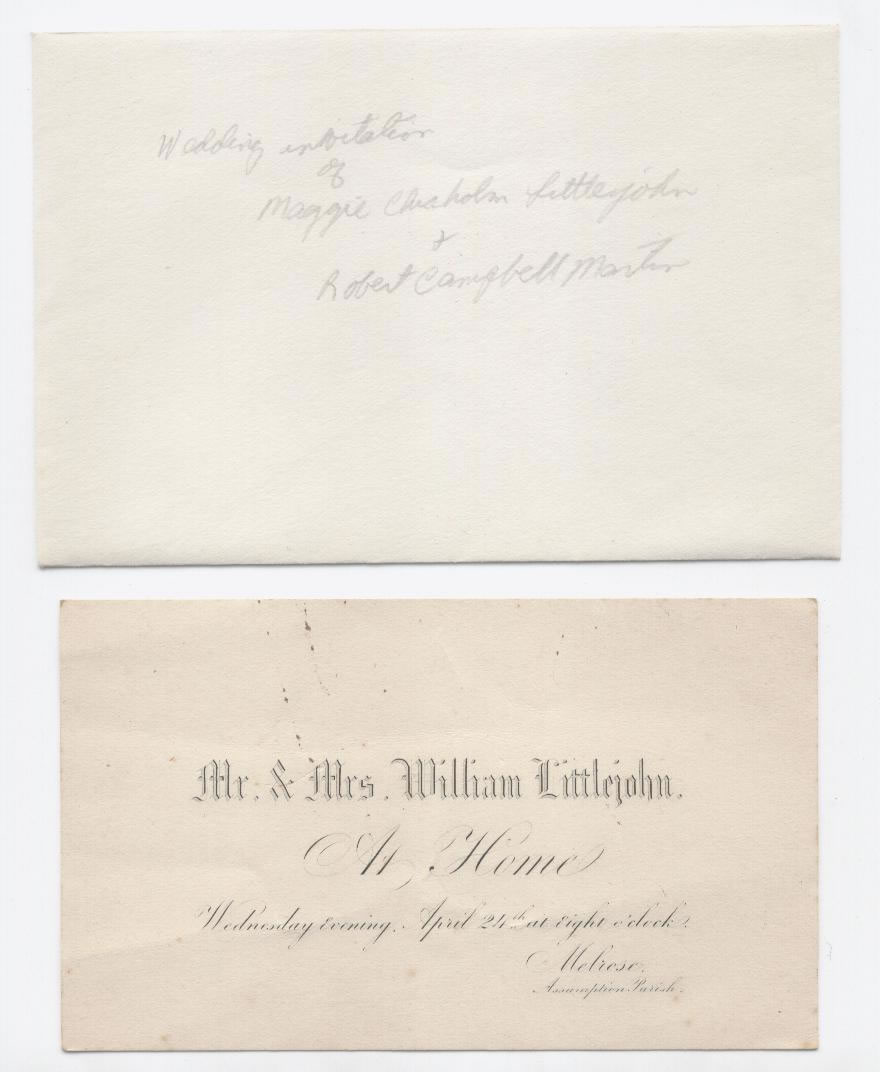 Wedding invitation
of
Maggie Chisholm Littlejohn
+
Robert Campbell Martin
Mr. & Mrs. William Littlejohn.
At Home
Wednesday Evening, April 24th at Eight o'clock.
Melrose.
Assumption Parish.